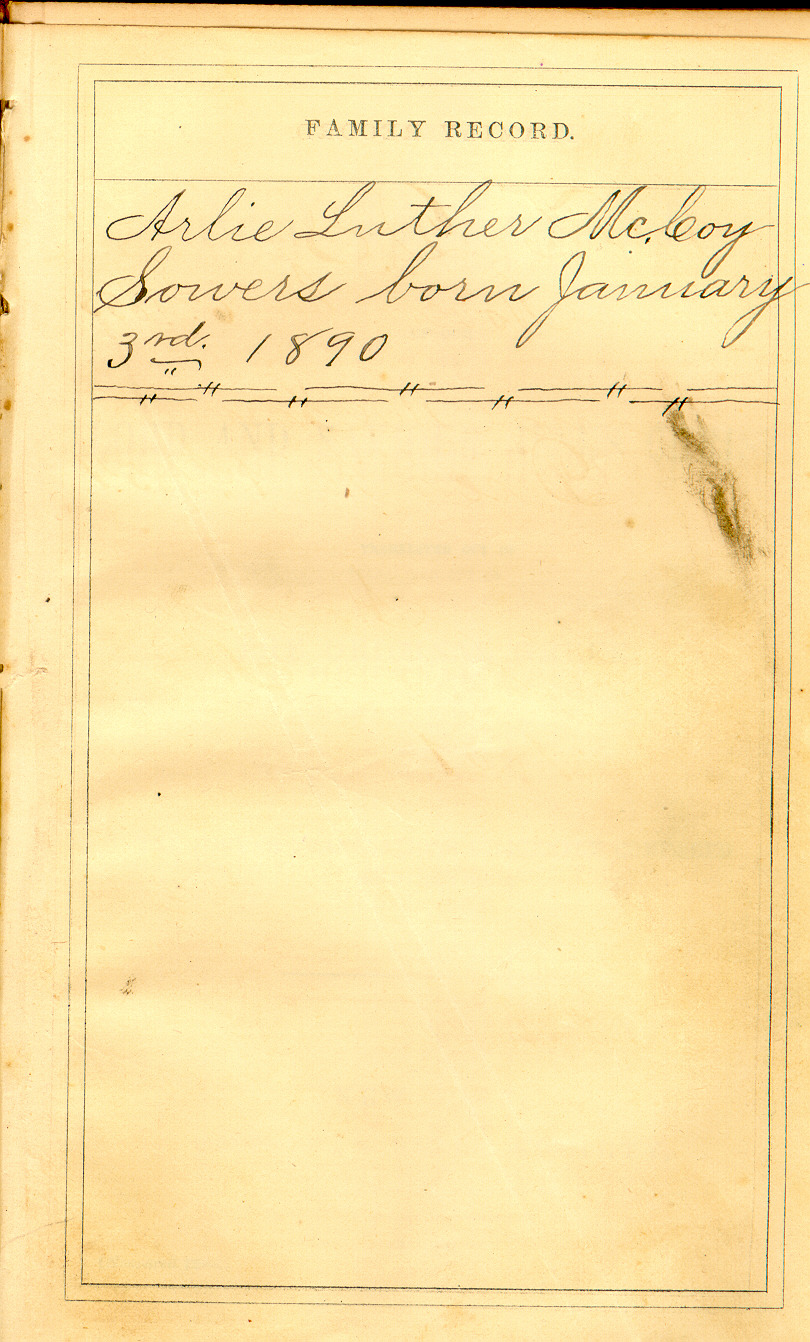 FAMILY RECORD.
Arlie Luther McCoy
Sowers born January
3rd. 1890